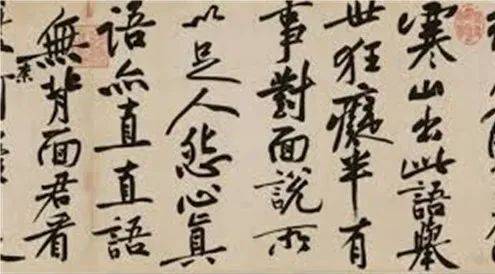 寒山出此語舉
世狂癡半有
事對面說所
以足人怨心真
語亦直直語
無背面君看